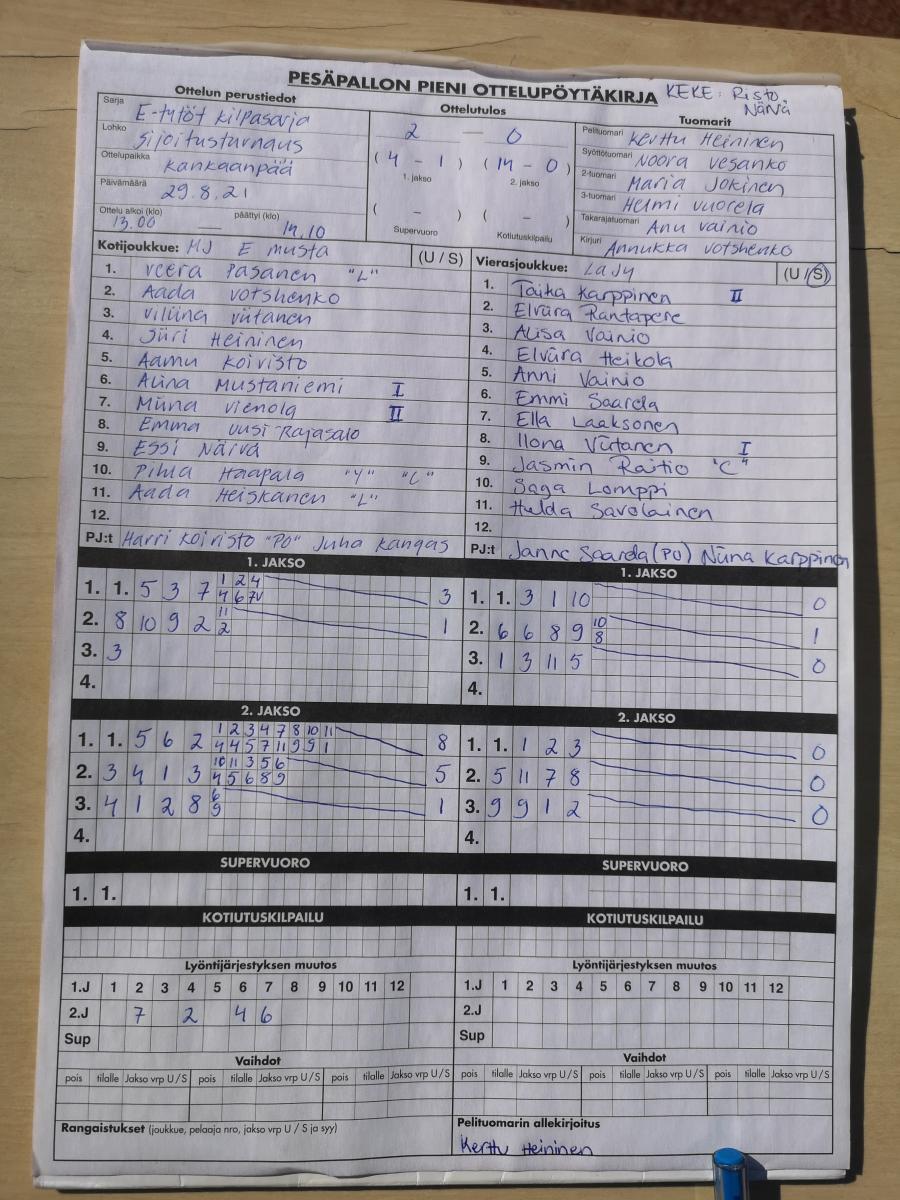 PESÄPALLON PIENI OTTELUPÖYTÄKIRJA KEKE: Risto Närvä
Ottelun perustiedot
Sarja E-tytöt kilpasarja
Lohko Sijoitusturnaus
Ottelupaikka Kankaanpää
Päivämäärä 29.8.21
Ottelu alkoi (klo) 13.00 päättyi (klo) 14.10
Ottelutulos
2 — 0
( 4 - 1 ) ( 14 - 0 )
1. jakso 2. jakso
( - ) ( - )
Supervuoro Kotiutuskilpailu
Tuomarit
Pelituomari Kerttu Heininen
Syöttötuomari Noora Vesanko
2-tuomari Maria Jokinen
3-tuomari Helmi Vuorela
Takarajatuomari Anu Vainio
Kirjuri Annukka Votshenko
Kotijoukkue: MJ E musta (U / S)
1. Veera Pasanen "L"
2. Aada Votshenko
3. Viliina Viitanen
4. Jiiri Heininen
5. Aamu Koivisto
6. Alina Mustaniemi I
7. Miina Vienola II
8. Emma Uusi-Rajasalo
9. Essi Närvä
10. Pihla Haapala "Y" "C"
11. Aada Heiskanen "L"
12.
PJ:t Harri Koivisto "PO" Juha Kangas
Vierasjoukkue: LaJy (U / S)
1. Taika Karppinen II
2. Elviira Rantapere
3. Alisa Vainio
4. Elviira Heikola
5. Anni Vainio
6. Emmi Saarela
7. Ella Laaksonen
8. Ilona Viitanen I
9. Jasmin Raitio "C"
10. Saga Lomppi
11. Hulda Savolainen
12.
PJ:t Janne Saarela (PO) Niina Karppinen
1. JAKSO
1. 1. 5 3 7 1 2 4 3
4 6 7V
2. 8 10 9 2 11 1
2
3. 3
4.
1. JAKSO
1. 1. 3 1 10 0
2. 6 6 8 9 10 1
8
3. 1 3 11 5 0
4.
2. JAKSO
1. 1. 5 6 2 1 2 3 4 7 8 10 11 8
4 4 5 7 11 9 9 1
2. 3 4 1 3 10 11 3 5 6 5
4 5 6 8 9
3. 4 1 2 8 6 1
9
4.
2. JAKSO
1. 1. 1 2 3 0
2. 5 11 7 8 0
3. 9 9 1 2 0
4.
SUPERVUORO
1. 1.
SUPERVUORO
1. 1.
KOTIUTUSKILPAILU
KOTIUTUSKILPAILU
Lyöntijärjestyksen muutos
1.J 1 2 3 4 5 6 7 8 9 10 11 12
2.J 7 2 4 6
Sup
Lyöntijärjestyksen muutos
1.J 1 2 3 4 5 6 7 8 9 10 11 12
2.J
Sup
Vaihdot
pois tilalle Jakso vrp U / S pois tilalle Jakso vrp U / S pois tilalle Jakso vrp U / S
Vaihdot
pois tilalle Jakso vrp U / S pois tilalle Jakso vrp U / S pois tilalle Jakso vrp U / S
Rangaistukset (joukkue, pelaaja nro, jakso vrp U / S ja syy)
Pelituomarin allekirjoitus
Kerttu Heininen